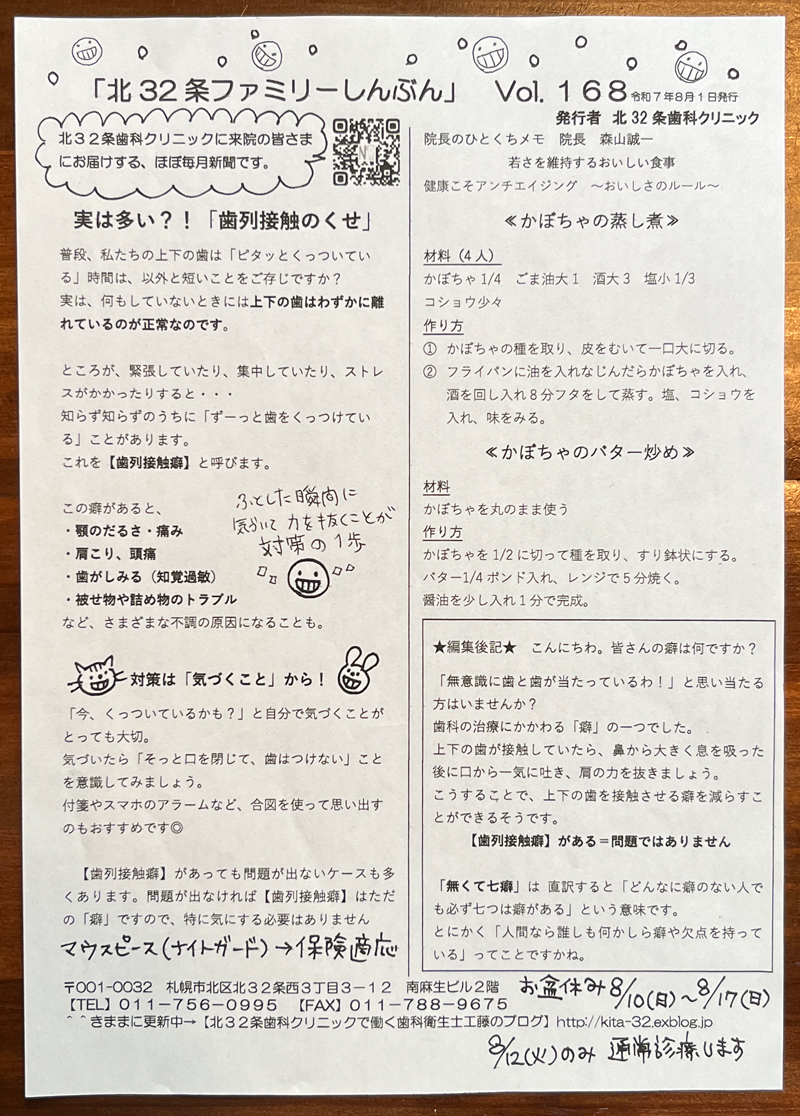 「北32条ファミリーしんぶん」 Vol. 168 令和7年8月1日発行
発行者 北32条歯科クリニック
北32条歯科クリニックに来院の皆さま
にお届けする、ほぼ毎月新聞です。
実は多い?!「歯列接触のくせ」
普段、私たちの上下の歯は「ピタッとくっついてい
る」時間は、以外と短いことをご存じですか?
実は、何もしていないときには上下の歯はわずかに離
れているのが正常なのです。
ところが、緊張していたり、集中していたり、ストレ
スがかかったりすると・・・
知らず知らずのうちに「ずーっと歯をくっつけてい
る」ことがあります。
これを【歯列接触癖】と呼びます。
この癖があると、
・顎のだるさ・痛み
・肩こり、頭痛
・歯がしみる(知覚過敏)
・被せ物や詰め物のトラブル
など、さまざまな不調の原因になることも。
ふとした瞬間に
気づいて力を抜くことが
対策の1歩
対策は「気づくこと」から!
「今、くっついているかも?」と自分で気づくことが
とっても大切。
気づいたら「そっと口を閉じて、歯はつけない」こと
を意識してみましょう。
付箋やスマホのアラームなど、合図を使って思い出す
のもおすすめです◎
【歯列接触癖】があっても問題が出ないケースも多
くあります。問題が出なければ【歯列接触癖】はただ
の「癖」ですので、特に気にする必要はありません
マウスピース(ナイトガード)→保険適応
院長のひとくちメモ 院長 森山誠一
若さを維持するおいしい食事
健康こそアンチエイジング ～おいしさのルール～
≪かぼちゃの蒸し煮≫
材料(4人)
かぼちゃ1/4 ごま油大1 酒大3 塩小1/3
コショウ少々
作り方
① かぼちゃの種を取り、皮をむいて一口大に切る。
② フライパンに油を入れなじんだらかぼちゃを入れ、
酒を回し入れ8分フタをして蒸す。塩、コショウを
入れ、味をみる。
≪かぼちゃのバター炒め≫
材料
かぼちゃを丸のまま使う
作り方
かぼちゃを1/2に切って種を取り、すり鉢状にする。
バター1/4ポンド入れ、レンジで5分焼く。
醤油を少し入れ1分で完成。
★編集後記★ こんにちわ。皆さんの癖は何ですか?
「無意識に歯と歯が当たっているわ!」と思い当たる
方はいませんか?
歯科の治療にかかわる「癖」の一つでした。
上下の歯が接触していたら、鼻から大きく息を吸った
後に口から一気に吐き、肩の力を抜きましょう。
こうすることで、上下の歯を接触させる癖を減らすこ
とができるそうです。
【歯列接触癖】がある＝問題ではありません
「無くて七癖」は 直訳すると「どんなに癖のない人で
も必ず七つは癖がある」という意味です。
とにかく「人間なら誰しも何かしら癖や欠点を持って
いる」ってことですかね。
〒001-0032 札幌市北区北32条西3丁目3-12 南麻生ビル2階
【TEL】011-756-0995 【FAX】011-788-9675
^^きままに更新中→【北32条歯科クリニックで働く歯科衛生士工藤のブログ】http://kita-32.exblog.jp
お盆休み8/10(日)～8/17(日)
8/12(火)のみ 通常診療します